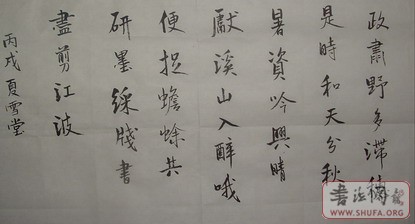 政肅野多滯穗
是時和天分秋
暑資吟興晴
獻溪山入醉哦
便捉蟾蜍共
研墨綵牋書
盡剪江波
丙戌夏雪堂
書法網
WWW.SHUFA.ORG